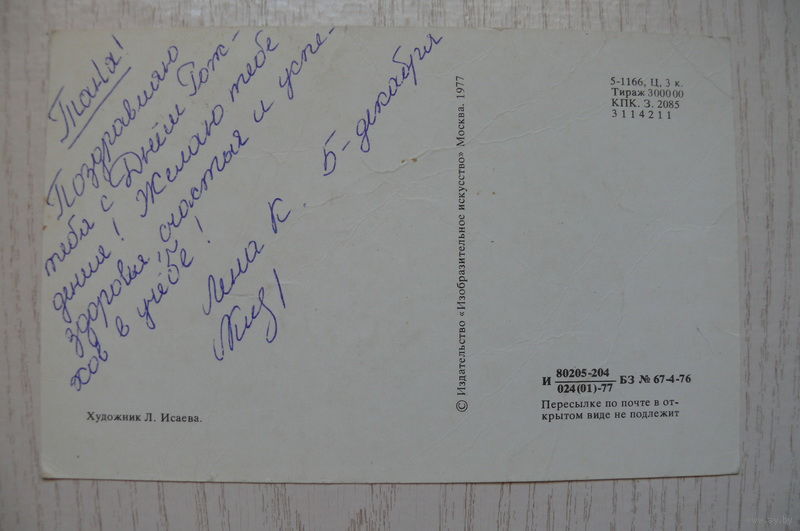 Таня!
Поздравляю
тебя с Днём Рож-
дения! Желаю тебе
здоровья, счастья и успе-
хов в учёбе!
Лена К
5-декабря
Художник Л. Исаева.
© Издательство «Изобразительное искусство» Москва. 1977
5-1166, Ц. 3 к.
Тираж 300000
КПК. З. 2085
3114211
И 80205-204
024(01)-77 БЗ № 67-4-76
Пересылке по почте в от-
крытом виде не подлежит